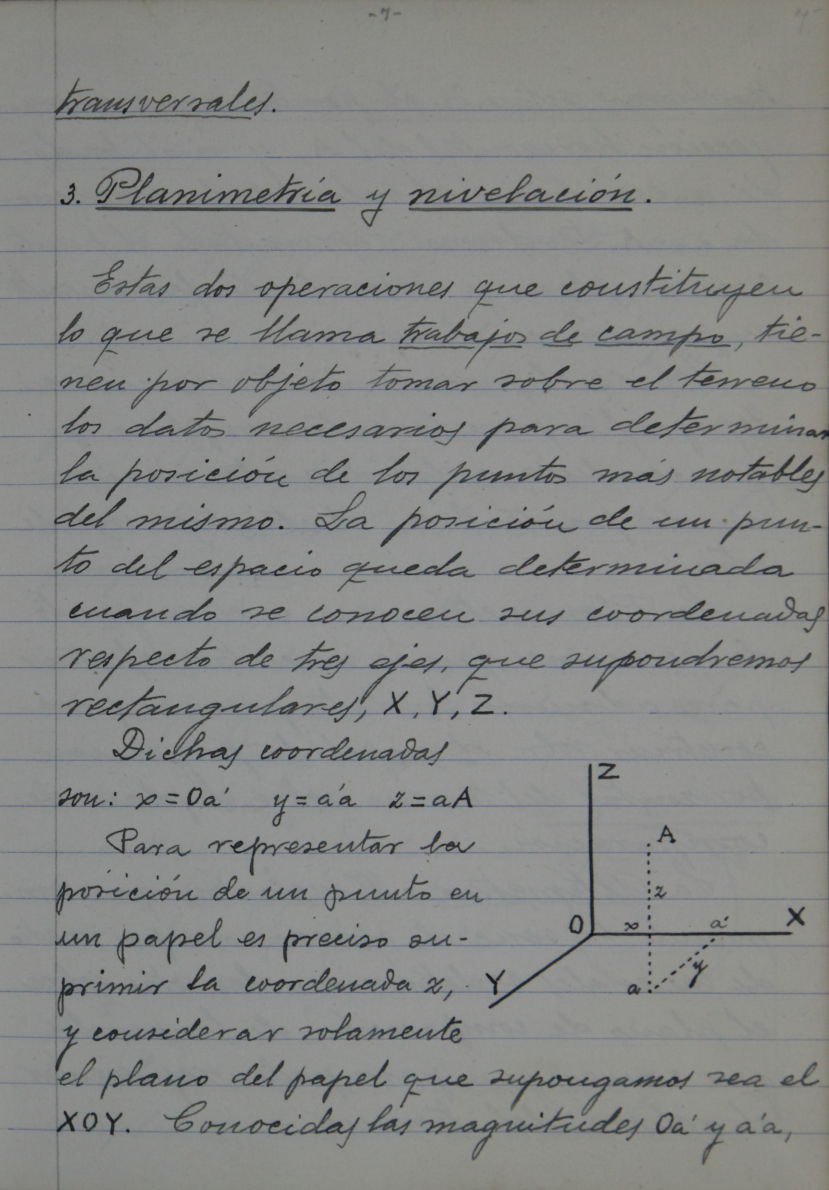 -7-
transversales.
3. Planimetría y nivelación.
Estas dos operaciones que constituyen
lo que se llama trabajos de campo, tie-
nen por objeto tomar sobre el terreno
los datos necesarios para determinar
la posición de los puntos más notables
del mismo. La posición de un pun-
to del espacio queda determinada
cuando se conocen sus coordenadas
respecto de tres ejes, que supondremos
rectangulares, X, Y, Z.
Dichas coordenadas
son: x=Oa' y=a'a z=aA
Para representar la
posición de un punto en
un papel es preciso su-
primir la coordenada z,
y considerar solamente
el plano del papel que supongamos sea el
XOY. Conocidas las magnitudes Oa' y a'a,
Z
A
z
O x a' X
Y a y